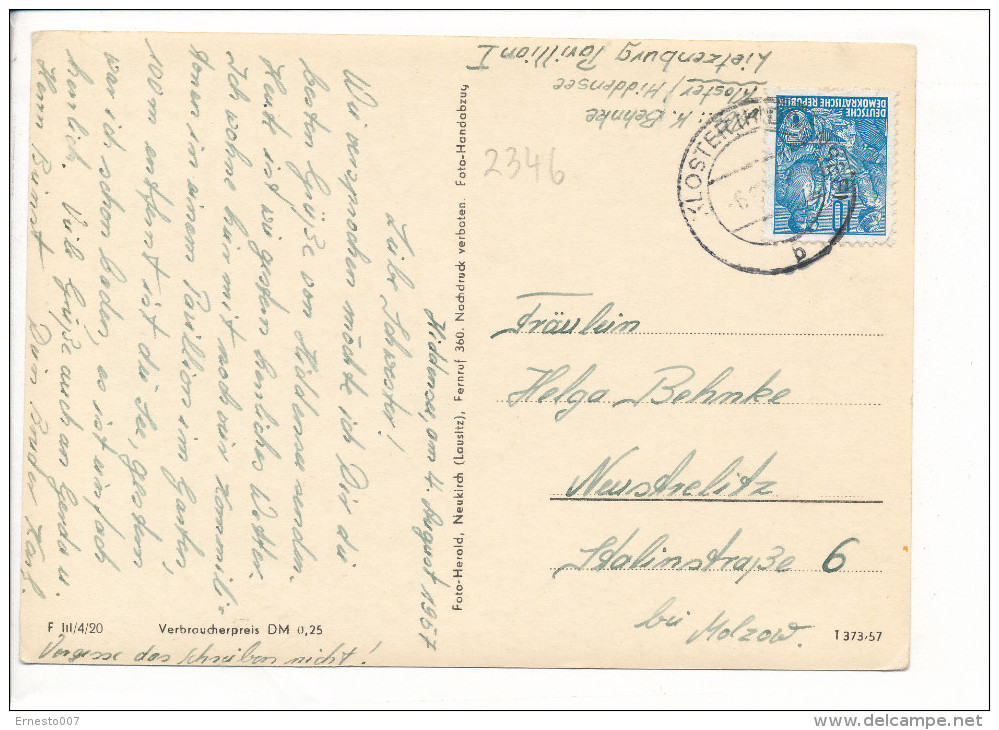 Hiddensee, am 4. August 1957
Liebe Schwester!
Wie versprochen möchte ich Dir die
besten Grüße von Hiddensee senden.
Heut ist wie gestern herrliches Wetter.
Ich wohne hier mit noch vier Kommili-
tonen in einem Pavillion im Garten,
100m entfernt ist die See, gestern
war ich schon baden, es ist einfach
herrlich. Viele Grüße auch an Gerda u.
Herrn
Dein Bruder Karl.
Vergesse das schreiben nicht!
F III/4/20
Verbraucherpreis DM 0,25
Foto-Herold, Neukirch (Lausitz), Fernruf 360. Nachdruck verboten. Foto-Handabzug
K. Behnke
Kloster/Hiddensee
Lietzenburg Pavillion I
2346
KLOSTER
b
DEUTSCHE
DEMOKRATISCHE REPUBLIK
10
Fräulein
Helga Behnke
Neustrelitz
Stalinstraße 6
bei Molzow.
T 373/57
Ernesto007
delcampe.net